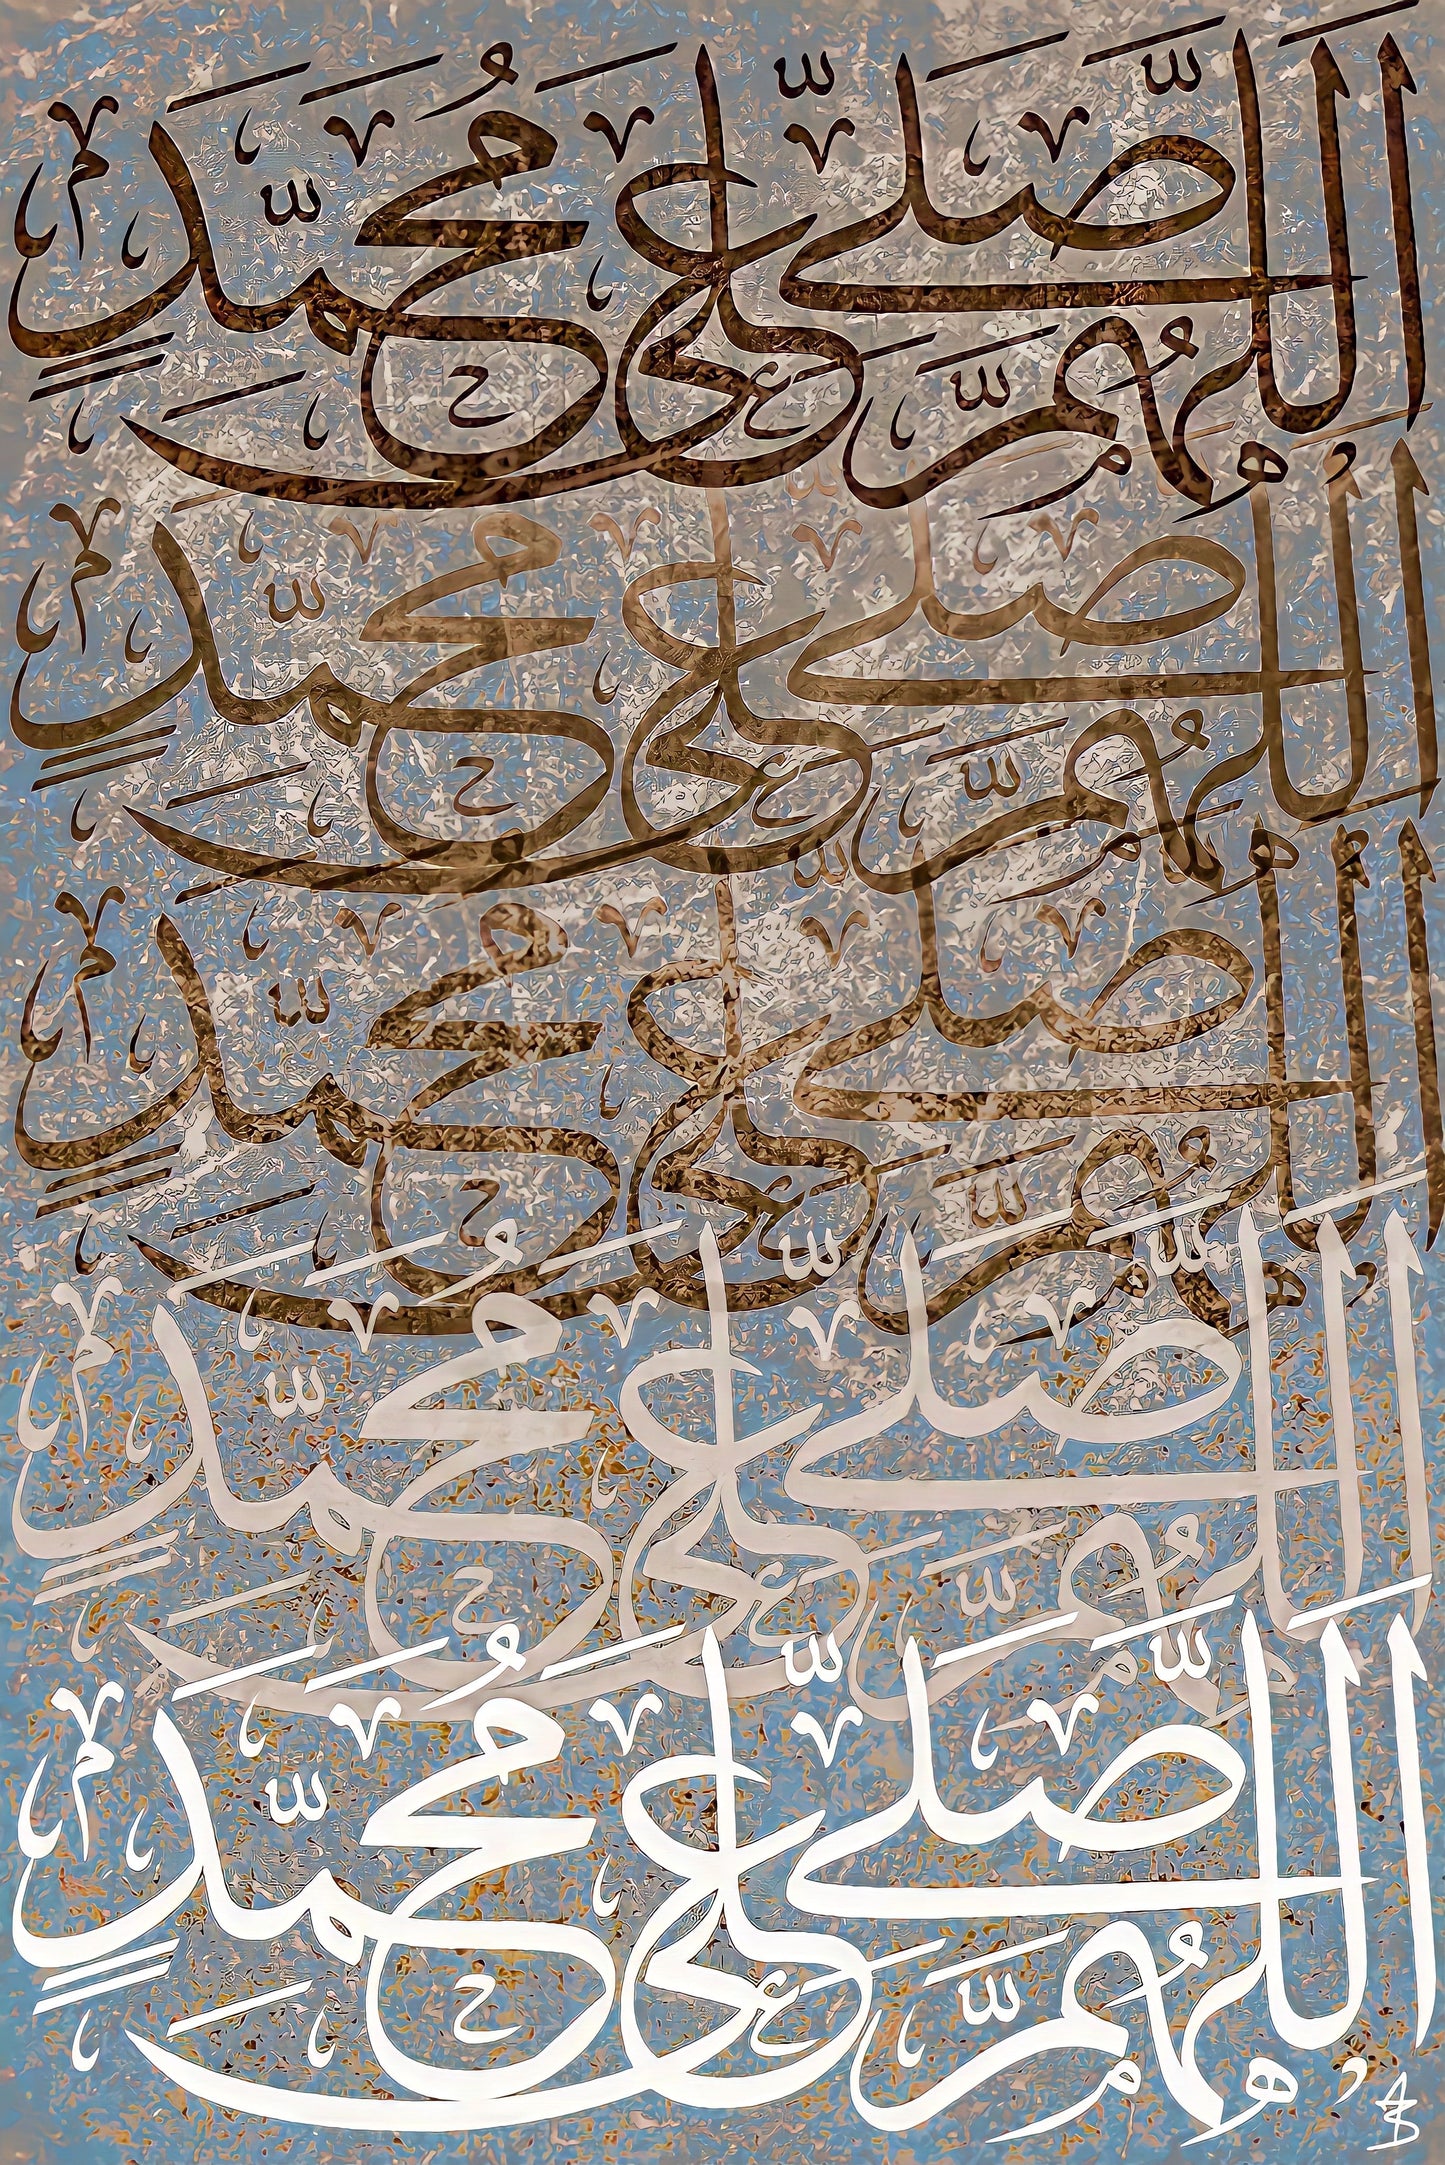 اَللّٰهُمَّ صَلِّ عَلَىٰ مُحَمَّدٍ
اَللّٰهُمَّ صَلِّ عَلَىٰ مُحَمَّدٍ
اَللّٰهُمَّ صَلِّ عَلَىٰ مُحَمَّدٍ
اَللّٰهُمَّ صَلِّ عَلَىٰ مُحَمَّدٍ
اَللّٰهُمَّ صَلِّ عَلَىٰ مُحَمَّدٍ